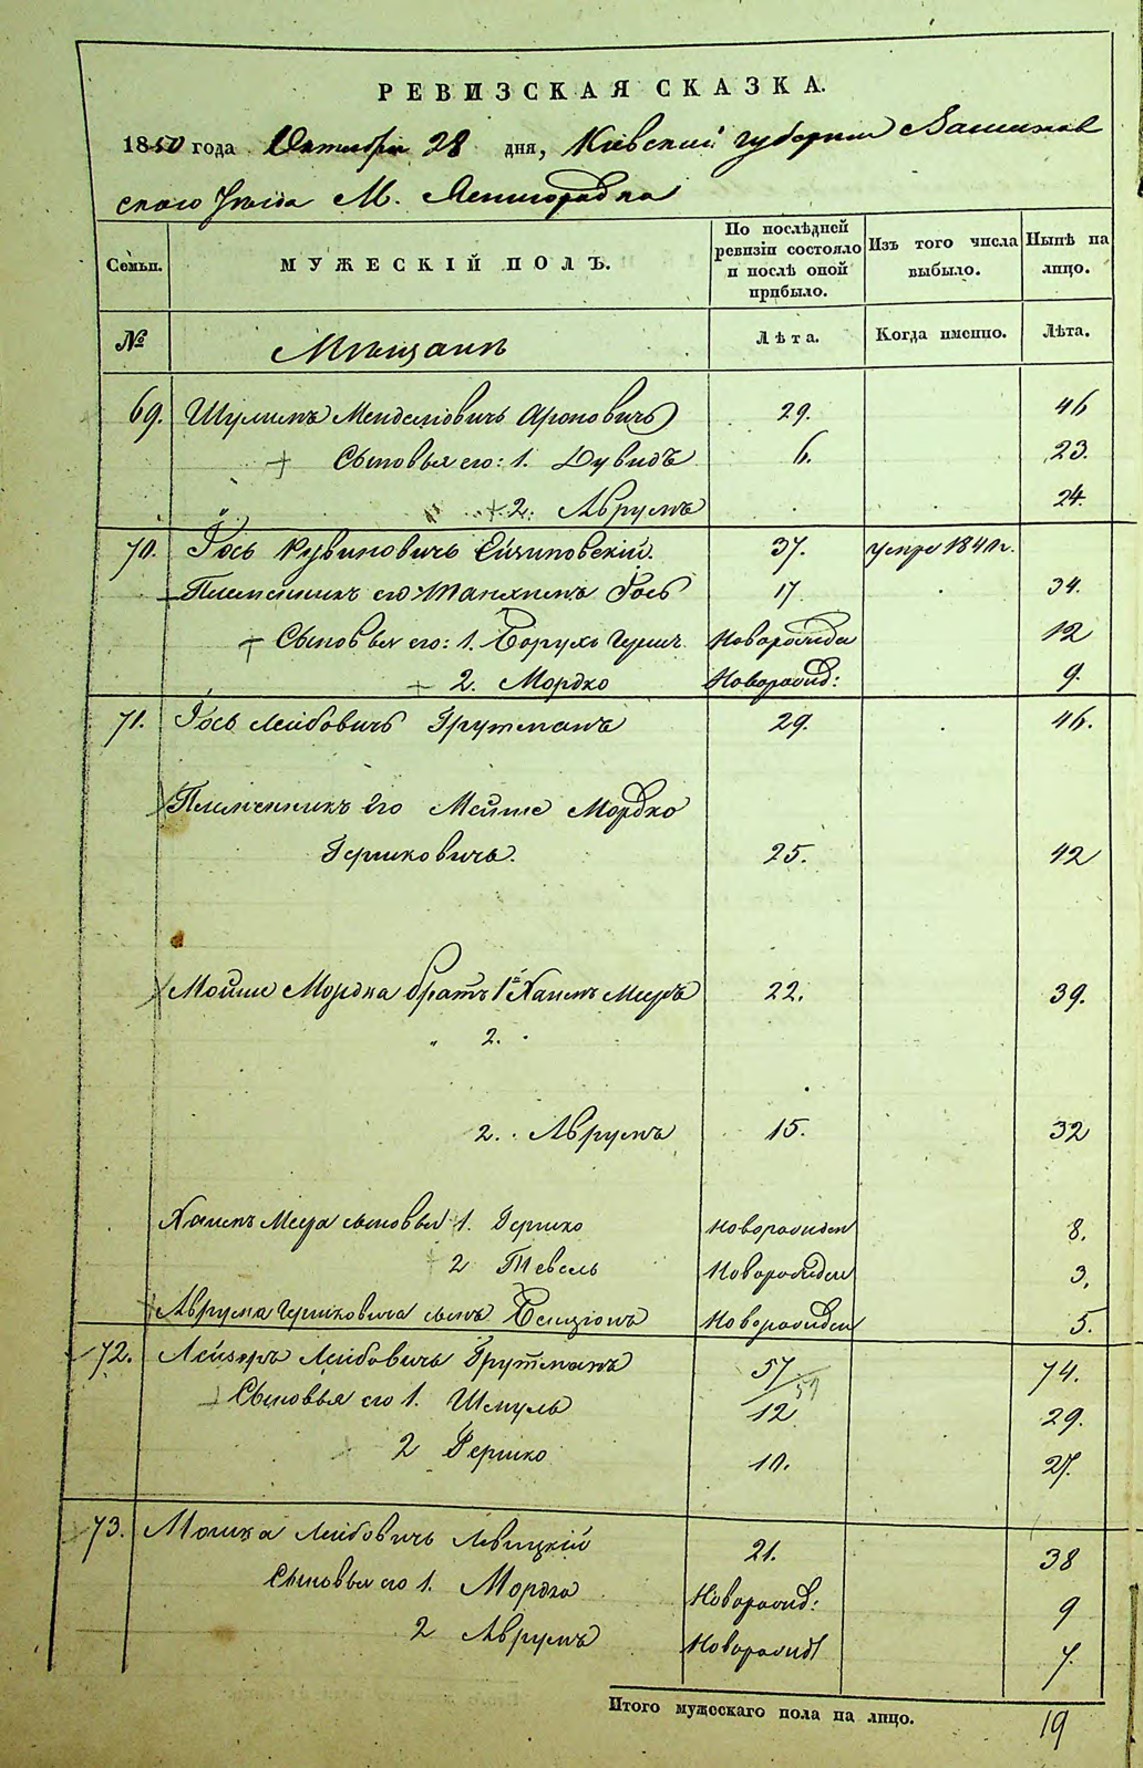 РЕВИЗСКАЯ СКАЗКА.
1850 года Октября 28 дня, Кіевской губерніи
скаго Уѣзда М.
Семьи.
МУЖЕСКІЙ ПОЛЪ.
По послѣдней ревизіи состояло и послѣ оной прибыло.
Изъ того числа выбыло.
Нынѣ на лицо.
№ Мѣщанъ Лѣта. Когда именно. Лѣта.
69. Шулимъ Менделіовичъ Ароновичъ 29. 46
Сыновья его: 1. Дувидъ 6. 23.
2. Аврумъ 24.
70. Іось Рувиновичъ 37. умре 1840 г.
Племенникъ его Іось 17 34.
Сыновья его: 1. Борухъ Новорожде 12
2. Мордко Новорожд: 9.
71. Іось Лейбовичъ Грутманъ 29. 46.
Племенникъ Его Мойше Мордко
Гершковичъ. 25. 42
Мойше Мордка братъ 1й Хаимъ Меиръ 22. 39.
" 2.
2. Аврумъ 15. 32
Хаимъ Меера сыновья 1. Гершко Новорожден 8.
2 Тевель Новорожден 3.
Аврума Гершковича сынъ Бенціонъ Новорожден 5.
72. Лейзоръ Лейбовичъ Грутманъ 57 74.
59
Сыновья его 1. Шмуль 12 29.
2 Гершко 10. 27.
73. Мошка Лейбовичъ Левицкій 21. 38
Сыновья его 1. Мордко Новорожд: 9
2 Аврумъ Новорожд 7.
Итого мужескаго пола на лицо. 19